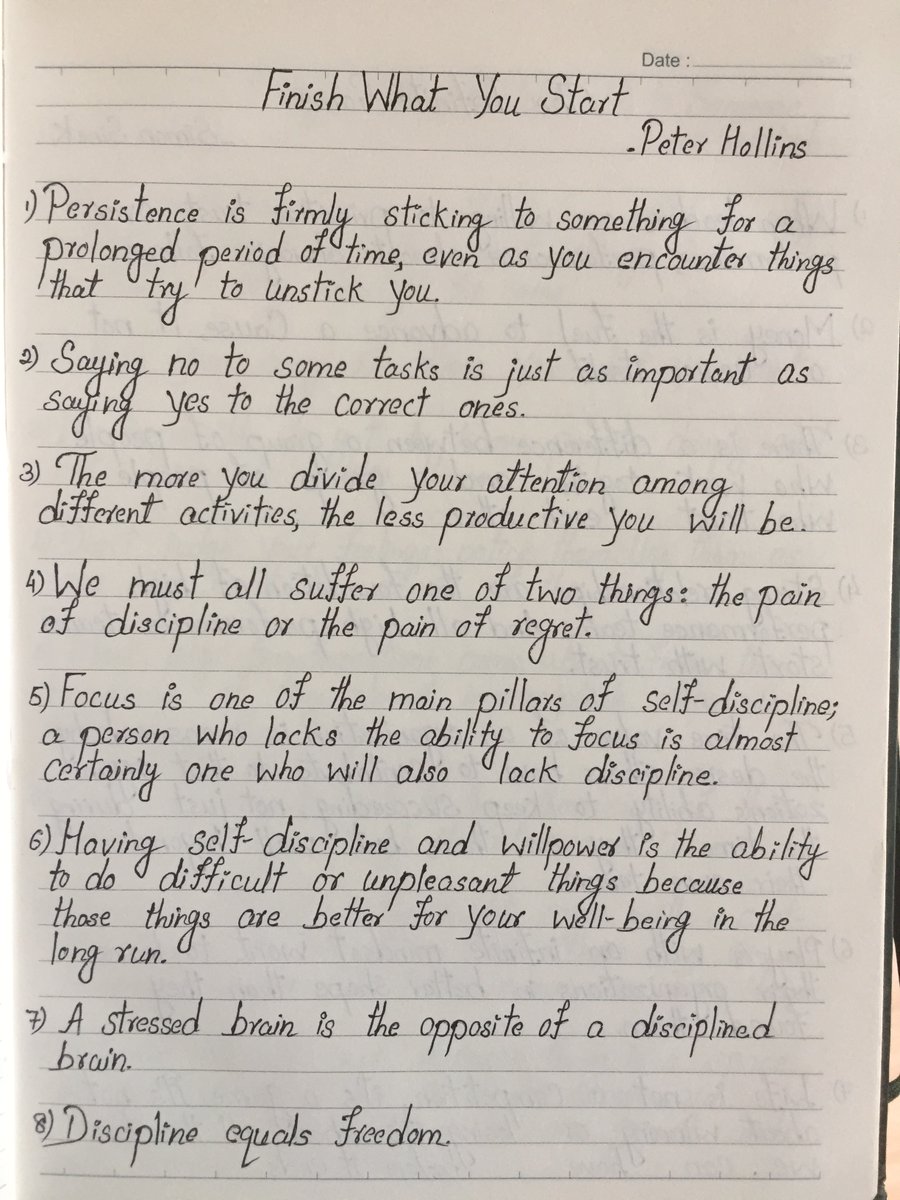 Date :
Finish What You Start
.Peter Hollins
1) Persistence is firmly sticking to something for a
prolonged period of time, even as you encounter things
that try to unstick you.
2) Saying no to some tasks is just as important as
saying yes to the correct ones.
3) The more you divide your attention among
different activities, the less productive you will be.
4) We must all suffer one of two things: the pain
of discipline or the pain of regret.
5) Focus is one of the main pillars of self-discipline;
a person who lacks the ability to focus is almost
certainly one who will also lack discipline.
6) Having self-discipline and willpower is the ability
to do difficult or unpleasant things because
those things are better for your well-being in the
long run.
7) A stressed brain is the opposite of a disciplined
brain.
8) Discipline equals freedom.